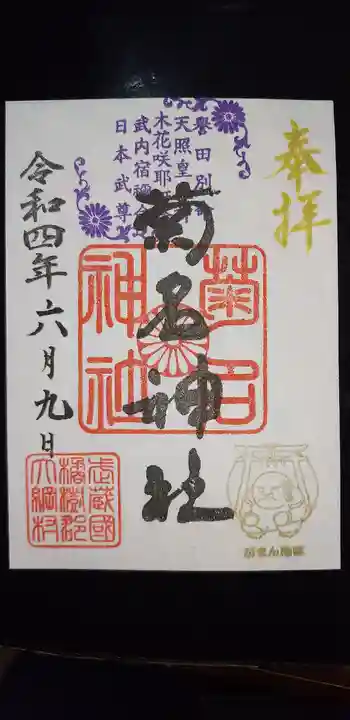 奉拝
誉田別
天照皇
木花咲耶
武内宿禰
日本武尊
菊名神社
菊名
神社
令和四年六月九日
武蔵國
橘樹郡
大綱村